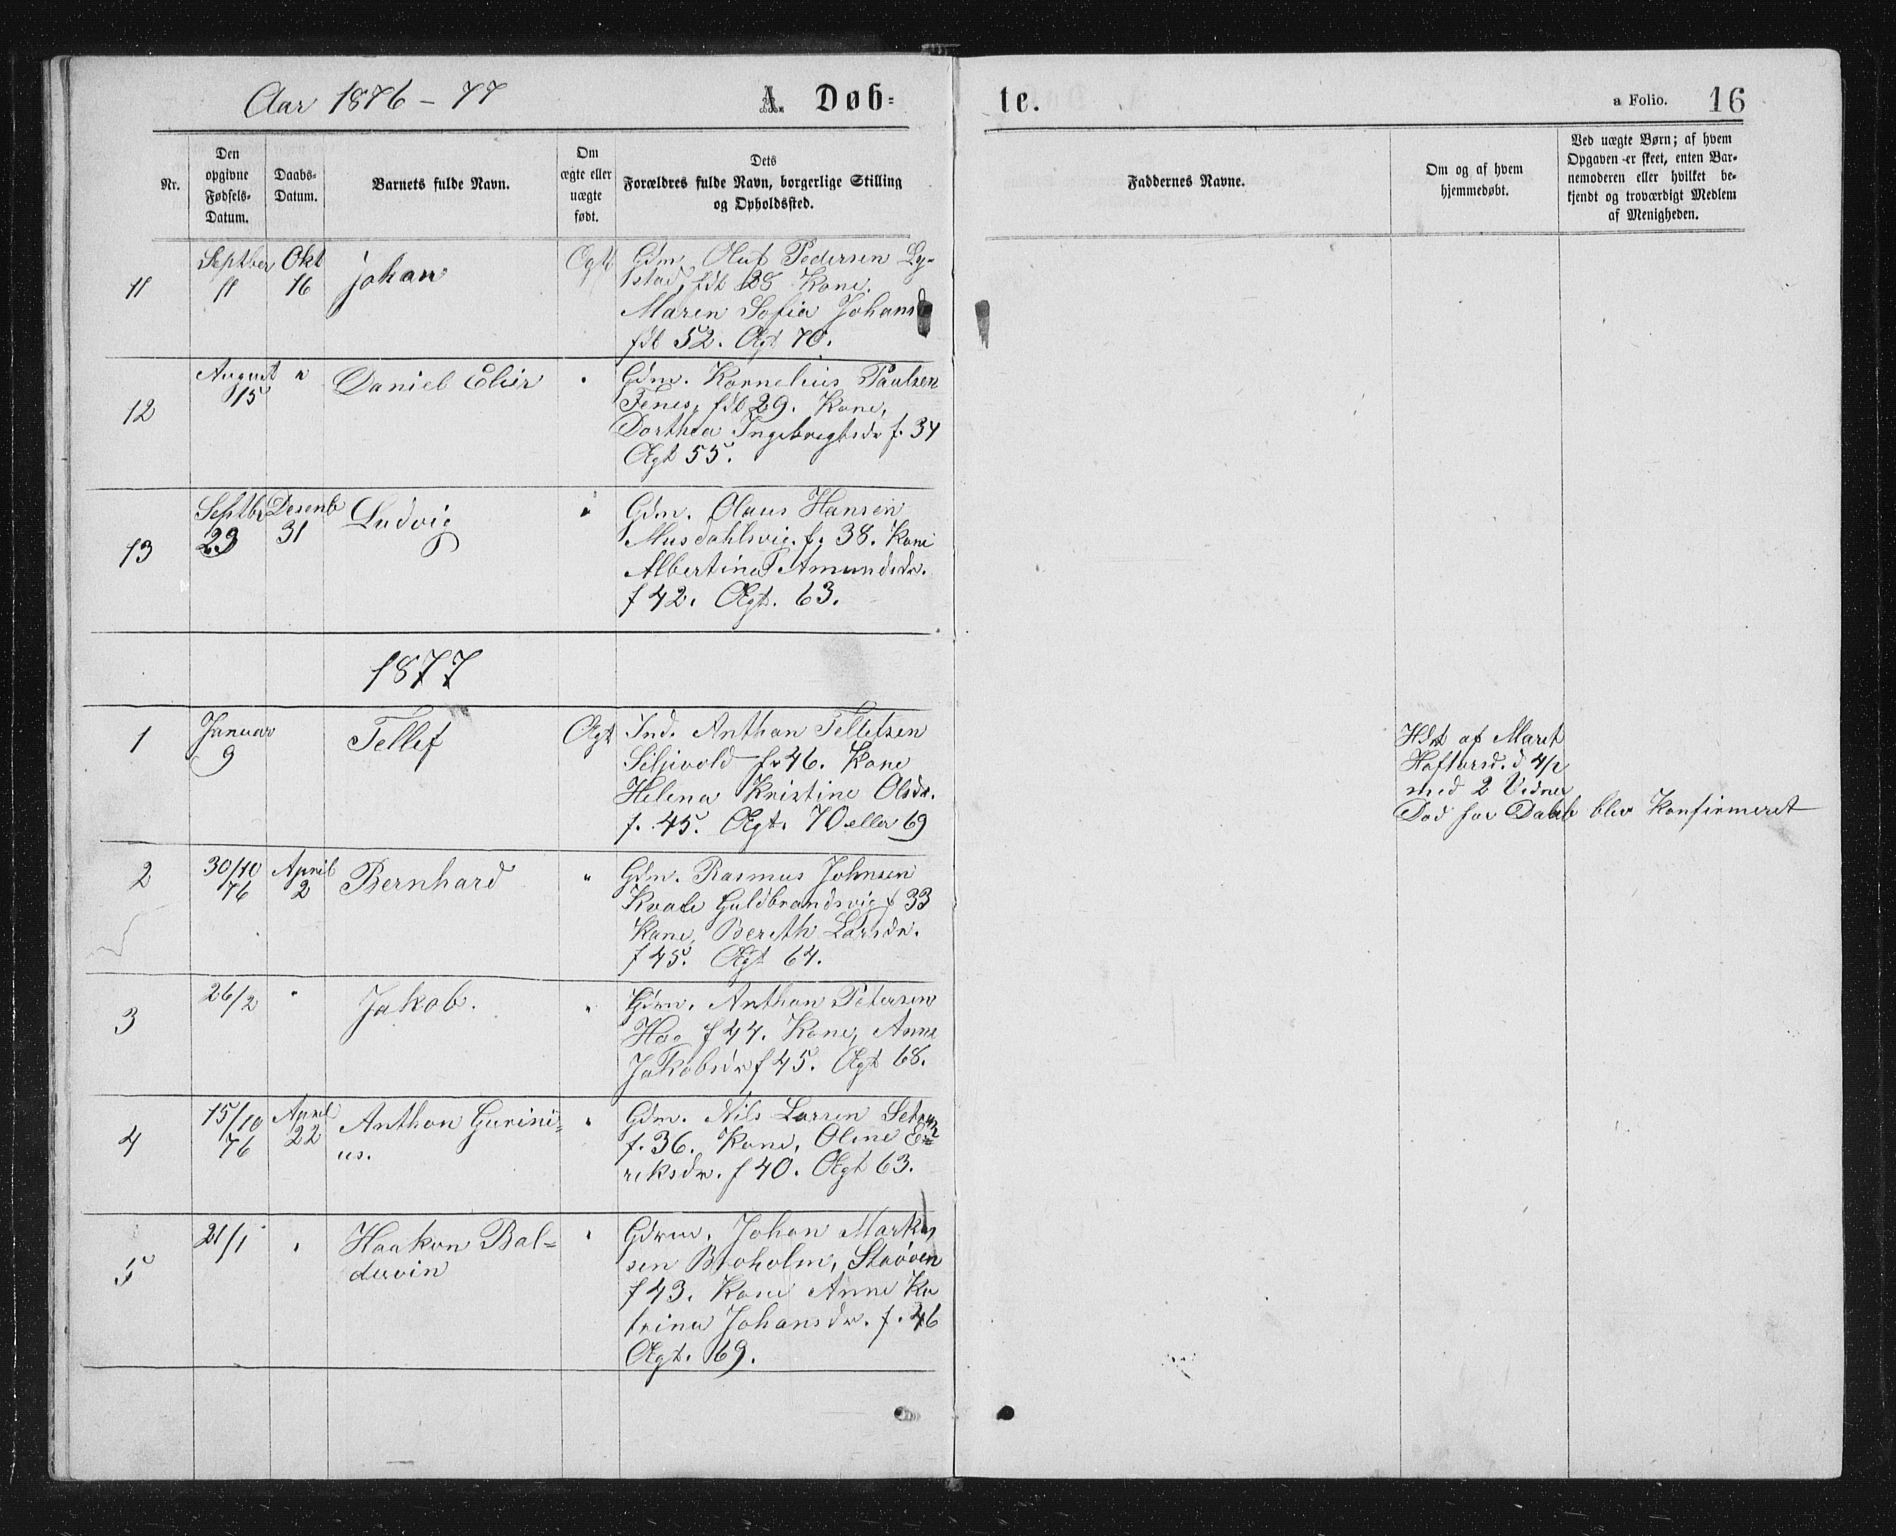 Aar 1876-77
A. Døb-
te.
a Folio. 16
Nr.
Den opgivne Fødsels-Datum.
Daabs-Datum.
Barnets fulde Navn.
Om ægte eller uægte født.
Dets Forældres fulde Navn, borgerlige Stilling og Opholdssted.
Faddernes Navne.
Om og af hvem hjemmedøbt.
Ved uægte Børn; af hvem Opgaven er skeet, enten Barnemoderen eller hvilket bekjendt og troværdigt Medlem af Menigheden.
11
Septber 11
Okt 16
Johan
Ægt
Gdm. Oluf Pedersen Ly-
stad, fdt Kone,
Maren Sofia Johansd
fdt 52. Ægt 70.
12
August 15
"
Daniel Elier
"
Gdm. Kornelius Paulsen
Fenes, fdt 29. Kone,
Dorthea Ingebregtsdr f. 34
Ægt 55.
13
Septbr 23
Desemb 31
Ludvig
"
Gdm. Olaus Hansen
Musdahlsvig. f. 38. Kone
Albertina Amundsdr.
f 42. Ægt. 63.
1877
1
Januar 9
Tellef
Ægt
Ind. Anthon Tellefsen
Seljevold f. 46. Kone
Helena Kristine Olsdr.
f. 45. Ægt. 70 eller 69
Hdt af Maret
med 2 Vidner
Død før Daab blev Konfirmeret
2
30/10 76
April 2
Bernhard
"
Gdm. Rasmus Johnsen
Kvale Guldbrandsvig f 33
Kone, Bereth Larsdr.
f 45. Ægt 64.
3
26/2
"
Jakob.
"
Gdm. Anthon Petersen
Hag f 47. Kone, Anne
Jakobsdr f 45. Ægt 68.
4
15/10 76
April 22
Anthon Gurini-
us.
"
Gdm. Nils Larsen
f. 36. Kone, Oline E-
reksdr. f 40. Ægt 63.
5
21/1
"
Haakon Bal-
duvin
"
Gdm. Johan Markus
sen Broholm, Straaen
f 43. Kone Anne Ka
trina Johansdr. f. 46
Ægt. 69.